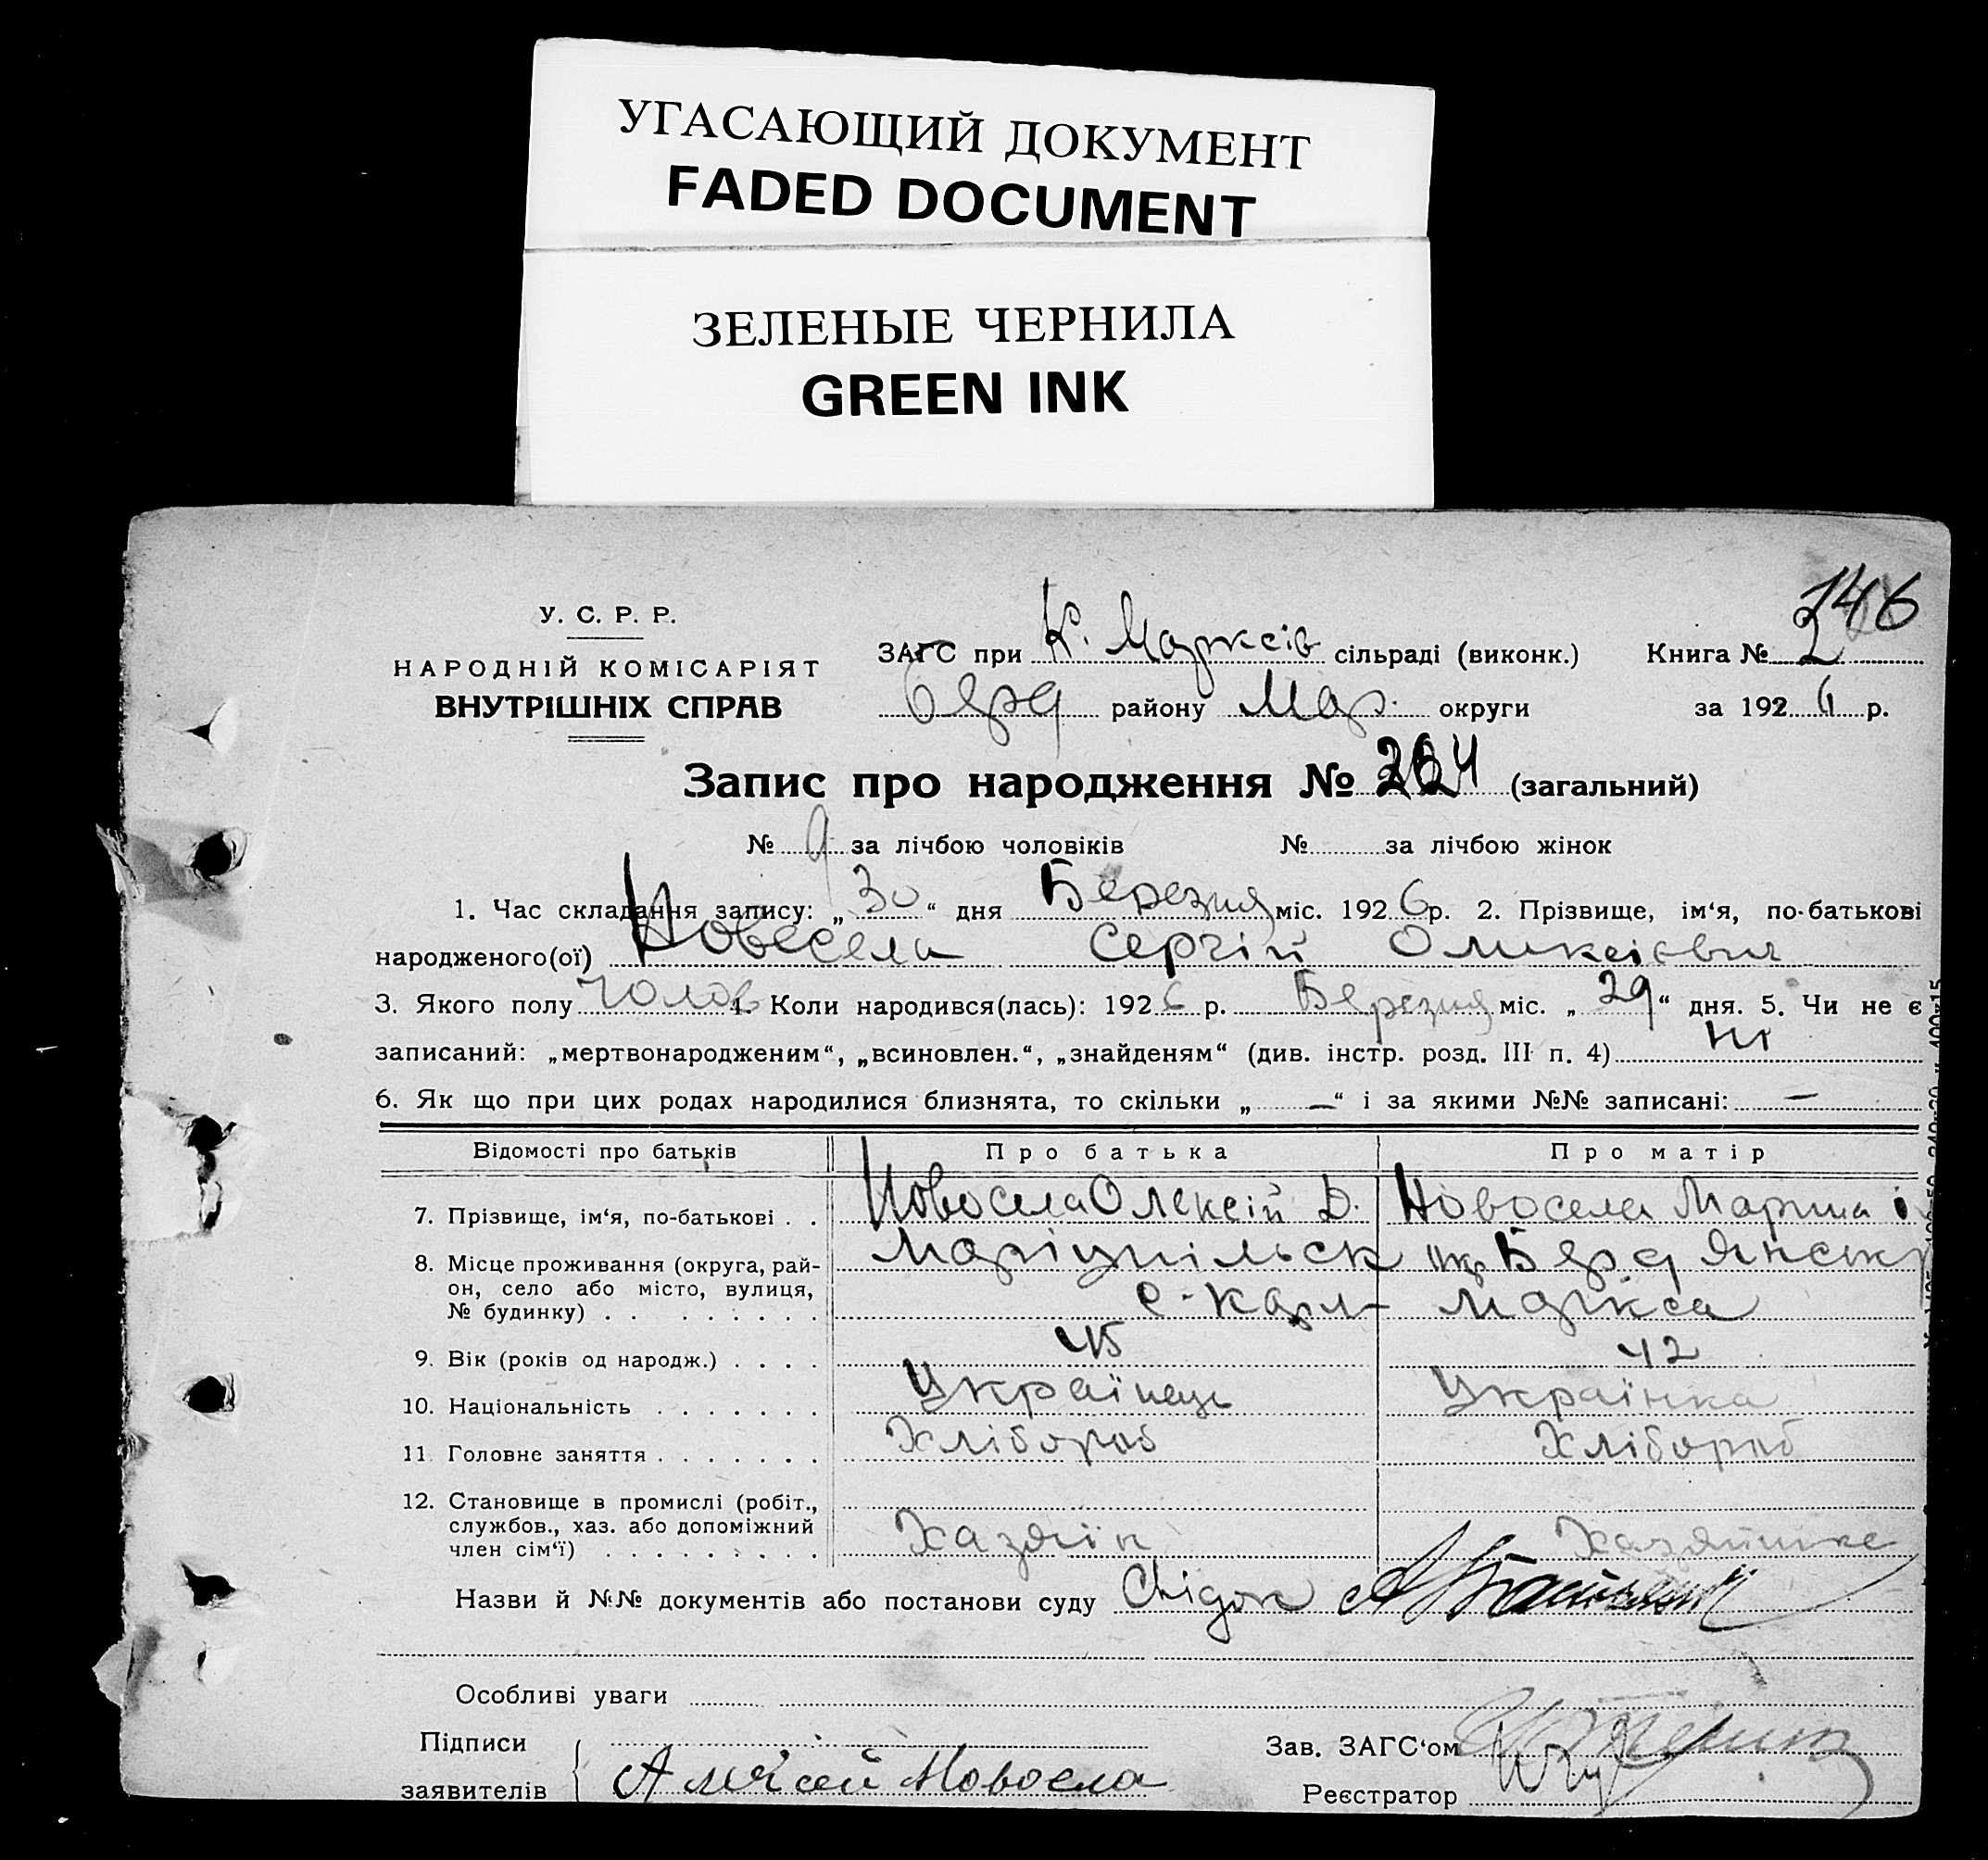 УГАСАЮЩИЙ ДОКУМЕНТ
FADED DOCUMENT
ЗЕЛЕНЫЕ ЧЕРНИЛА
GREEN INK
146
У. С. Р. Р.
НАРОДНІЙ КОМІСАРІЯТ
ВНУТРІШНІХ СПРАВ
ЗАГС при К. Марксів сільраді (виконк.) Книга № 2
Берд району Мар. округи за 192 6 р.
Запис про народження № (загальний)
№ 9 за лічбою чоловіків № за лічбою жінок
1. Час складання запису: „30“ дня Березня міс. 1926 р. 2. Прізвище, ім‘я, по-батькові
народженого(ої) Новосела Сергій Оликсієвич
3. Якого полу Чолов 4. Коли народився(лась): 1926 р. Березня міс. „29“ дня. 5. Чи не є
записаний: „мертвонародженим“, „всиновлен.“, „знайденям“ (див. інстр. розд. III п. 4) ні
6. Як що при цих родах народилися близнята, то скільки „—“ і за якими №№ записані: —
Відомості про батьків Про батька Про матір
7. Прізвище, ім‘я, по-батькові . . Новосела Олексій Д. Новосела Марина І
8. Місце проживання (округа, рай-
он, село або місто, вулиця,
№ будинку) . . . . . . . . Маріупільск окр Бердянськ
с. Карл Маркса
9. Вік (років од народж.) . . . . 45 42
10. Національність . . . . . . . Українець Українка
11 Головне заняття . . . . . . . Хлібороб Хлібороб
12. Становище в промислі (робіт.,
службов., хаз. або допоміжний
член сім‘ї) . . . . . . . . . Хазяїн Хазяйшка
Назви й №№ документів або постанови суду Свідок
Особливі уваги
Підписи
заявителів Алексей Новосела
Зав. ЗАГС‘ом
Реєстратор